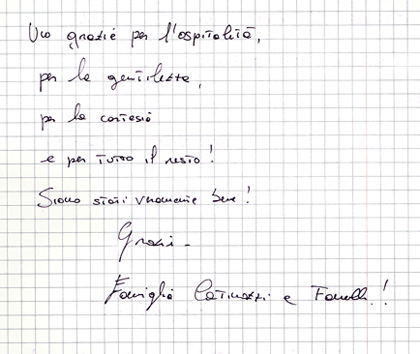 Un grazie per l'ospitalità,
per la gentilezza,
per la cortesia
e per tutto il resto!
Siamo stati veramente bene!
Grazie -
Famiglia e !